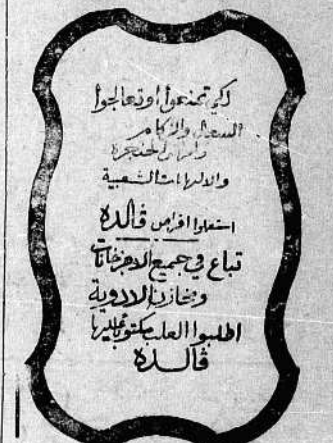 لكي تمنعوا اوتعالجوا
السعال والزكام
وامراض الحنجرة
والالتهابات الشعبية
استعملوا اقراص ڤالده
تباع في جميع الاجزخانات
ومخازن الادوية
اطلبوا العلب مكتوب عليها
ڤالده